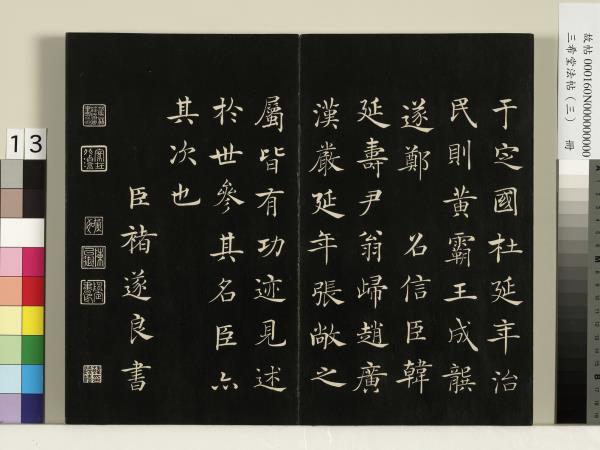 于定國杜延年治
民則黃霸王成龔
遂鄭 召信臣韓
延壽尹翁歸趙廣
漢嚴延年張敞之
屬皆有功迹見述
於世參其名臣亦
其次也
臣褚遂良書
故帖000160N000000000
三希堂法帖（三） 冊
13